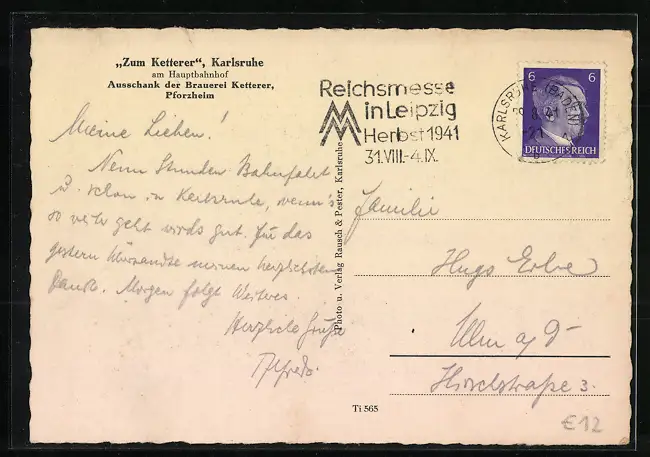 „Zum Ketterer", Karlsruhe
am Hauptbahnhof
Ausschank der Brauerei Ketterer,
Pforzheim
Meine Lieben!
Neun Stunden Bahnfahrt
u. schon in Karlsruhe, wenn's
so weiter geht wirds gut. Für das
gestern meinen herzlichsten
Dank. Morgen folgt Weiteres.
Herzliche Grüße
Alfred.
Photo u. Verlag Rausch & Pester, Karlsruhe
Ti 565
Reichsmesse
in Leipzig
Herbst 1941
31.VIII.-4.IX.
KARLSRUHE (BADEN)
6 6
DEUTSCHES REICH
Familie
Hugo Erbe
Ulm a/D
Hirschstraße 3.
€12